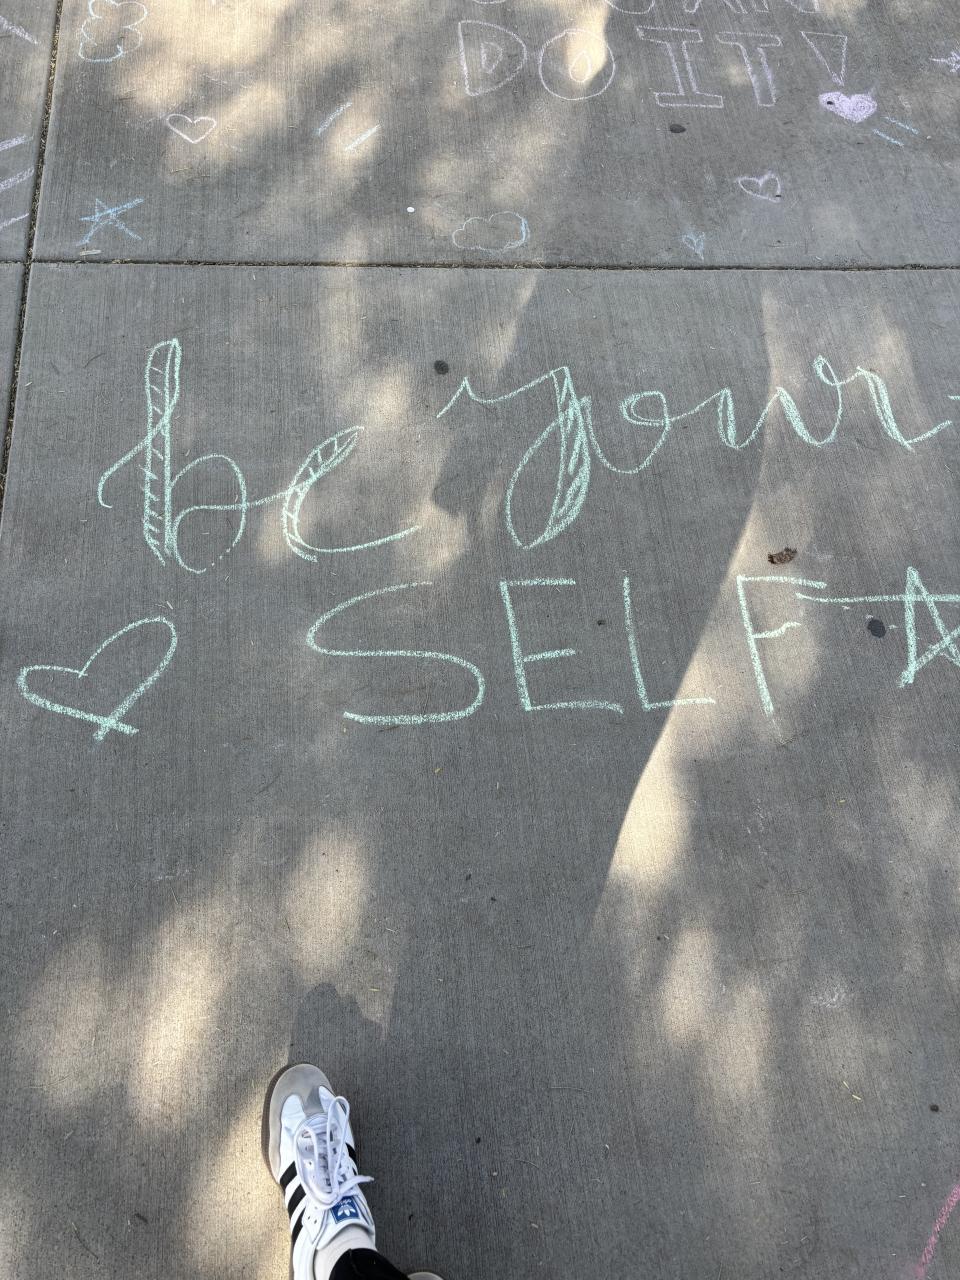 DO IT!
be your
SELF